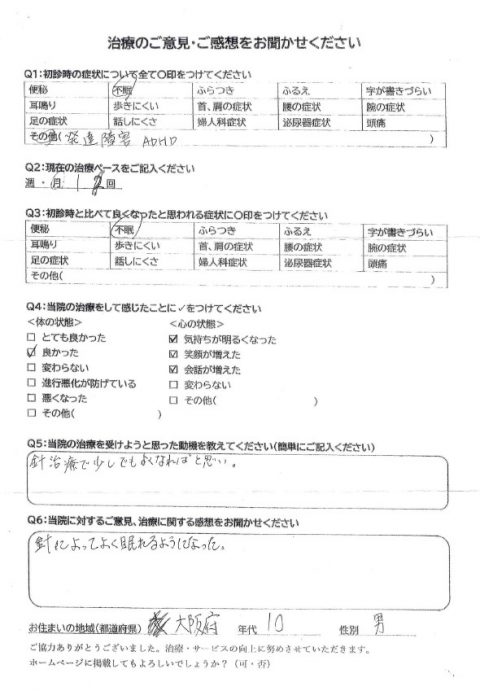 治療のご意見・ご感想をお聞かせください
Q1:初診時の症状について全て○印をつけてください
便秘 不眠 ふらつき ふるえ 字が書きづらい
耳鳴り 歩きにくい 首、肩の症状 腰の症状 腕の症状
足の症状 話しにくさ 婦人科症状 泌尿器症状 頭痛
その他( 発達障害 ADHD )
Q2:現在の治療ペースをご記入ください
週・月 1 回
Q3:初診時と比べて良くなったと思われる症状に○印をつけてください
便秘 不眠 ふらつき ふるえ 字が書きづらい
耳鳴り 歩きにくい 首、肩の症状 腰の症状 腕の症状
足の症状 話しにくさ 婦人科症状 泌尿器症状 頭痛
その他( )
Q4:当院の治療をして感じたことに✓をつけてください
<体の状態> <心の状態>
□ とても良かった ☑ 気持ちが明るくなった
☑ 良かった ☑ 笑顔が増えた
□ 変わらない ☑ 会話が増えた
□ 進行悪化が防げている □ 変わらない
□ 悪くなった □ その他( )
□ その他( )
Q5:当院の治療を受けようと思った動機を教えてください(簡単にご記入ください)
針治療で少しでもよくなればと思い。
Q6:当院に対するご意見、治療に関する感想をお聞かせください
針によってよく眠れるようになった。
お住まいの地域(都道府県) 大阪府 年代 10 性別 男
ご協力ありがとうございました。治療・サービスの向上に努めさせていただきます。
ホームページに掲載してもよろしいでしょうか?(可・否)